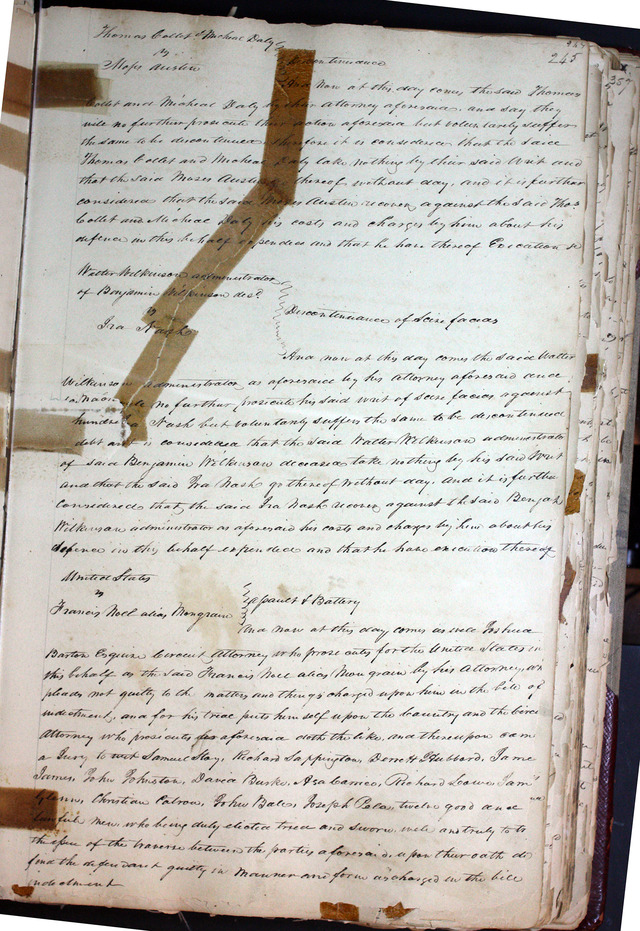 245
Thomas Collet & Micheal Daly
vs
Moses Austin
Discontinuance
And Now at this day comes the said Thomas
Collet and Micheal Daly by their attorney aforesaid and say they
will no further prosecute their action aforesaid but voluntarily suffer
the same to be discontinued therefore it is considered that the said
Thomas Collet and Micheal Daly take nothing by their said Writ and
that the said Moses Austin thereof without day, and it is further
considered that the said Moses Austin recover against the said Thos
Collet and Micheal Daly his costs and charges by him about his
defence in this behalf expended and that he have thereof Execution &c
Walter Wilkinson administrator
of Benjamin Wilkinson decd.
vs
Ira Nash
Discontinuance of Scire facias
And now at this day comes the said Walter
Wilkinson administrator as aforesaid by his Attorney aforesaid and
no further prosecute his said writ of scire facias against
Nash but voluntarily suffers the same to be discontinued
is considered that the said Walter Wilkinson administrator
of said Benjamin Wilkinson deceased take nothing by his said Writ
and that the said Ira Nash go thereof without day. and it is further
considered that, the said Ira Nash recover against the said Benjan
Wilkinson administrator as aforesaid his costs and charges by him about his
defence in this behalf expended and that he have execution thereof
United States
vs
Francis Noel alias Mongrain
Assault & Battery
And now at this day comes as well Joshua
Barton Esquire Circuit Attorney who prosecutes for the United States in
this behalf as the said Francis Noel alias Mongrain by his Attorney, and
pleads not guilty to the matters and things charged upon him in the bill of
indictment, and for his trial puts himself upon the Country and the Circuit
Attorney who prosecutes as aforesaid doth the like, and thereupon came
a Jury to wit Samuel Hoy, Richard Sappington, Hubbard, Jame
James, John Johnston, David Burke, Asa Richard Lowe, Saml
Glenn, Christian John Bate, Joseph twelve good and
lawful men, who being duly elected tried and sworn well and truly to try
the issue of the traverse between the parties aforesaid upon their oath do
find the defendant guilty in manner and form as charged in the bill
indictment